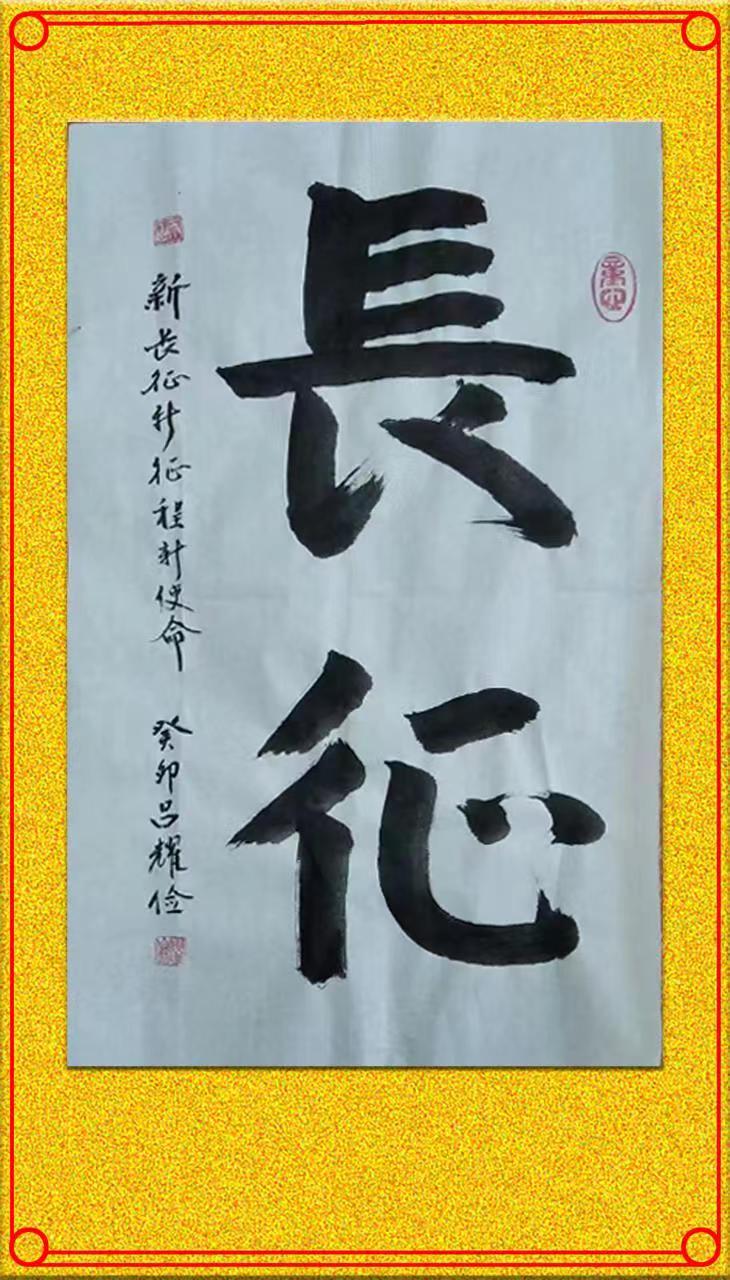 長征
新长征新征程新使命 癸卯吕耀俭